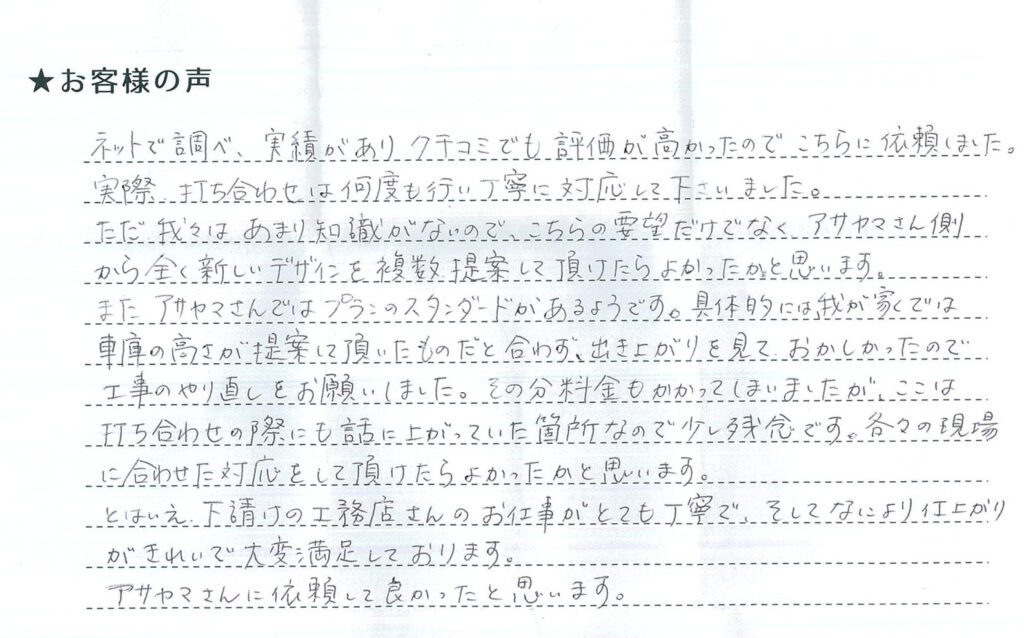 ★お客様の声
ネットで調べ、実績があり クチコミでも 評価が高かったので こちらに依頼しました。
実際、打ち合わせは何度も行い丁寧に対応して下さいました。
ただ 我々は あまり知識がないので、こちらの要望だけでなく、アサヤマさん側
から 全く新しいデザインを複数提案して頂けたらよかったかと思います。
また アサヤマさんではプランのスタンダードがあるようです。具体的には、我が家では
車庫の高さが提案して頂いたものだと合わず、出き上がりを見て、おかしかったので
工事のやり直しをお願いしました。その分料金もかかってしまいましたが、ここは
打ち合わせの際にも話に上がっていた箇所なので少し残念です。各々の現場
に合わせた対応をして頂けたらよかったかと思います。
とはいえ、下請けの工務店さんのお仕事がとても丁寧で、そしてなにより仕上がり
がきれいで大変満足しております。
アサヤマさんに依頼して良かったと思います。